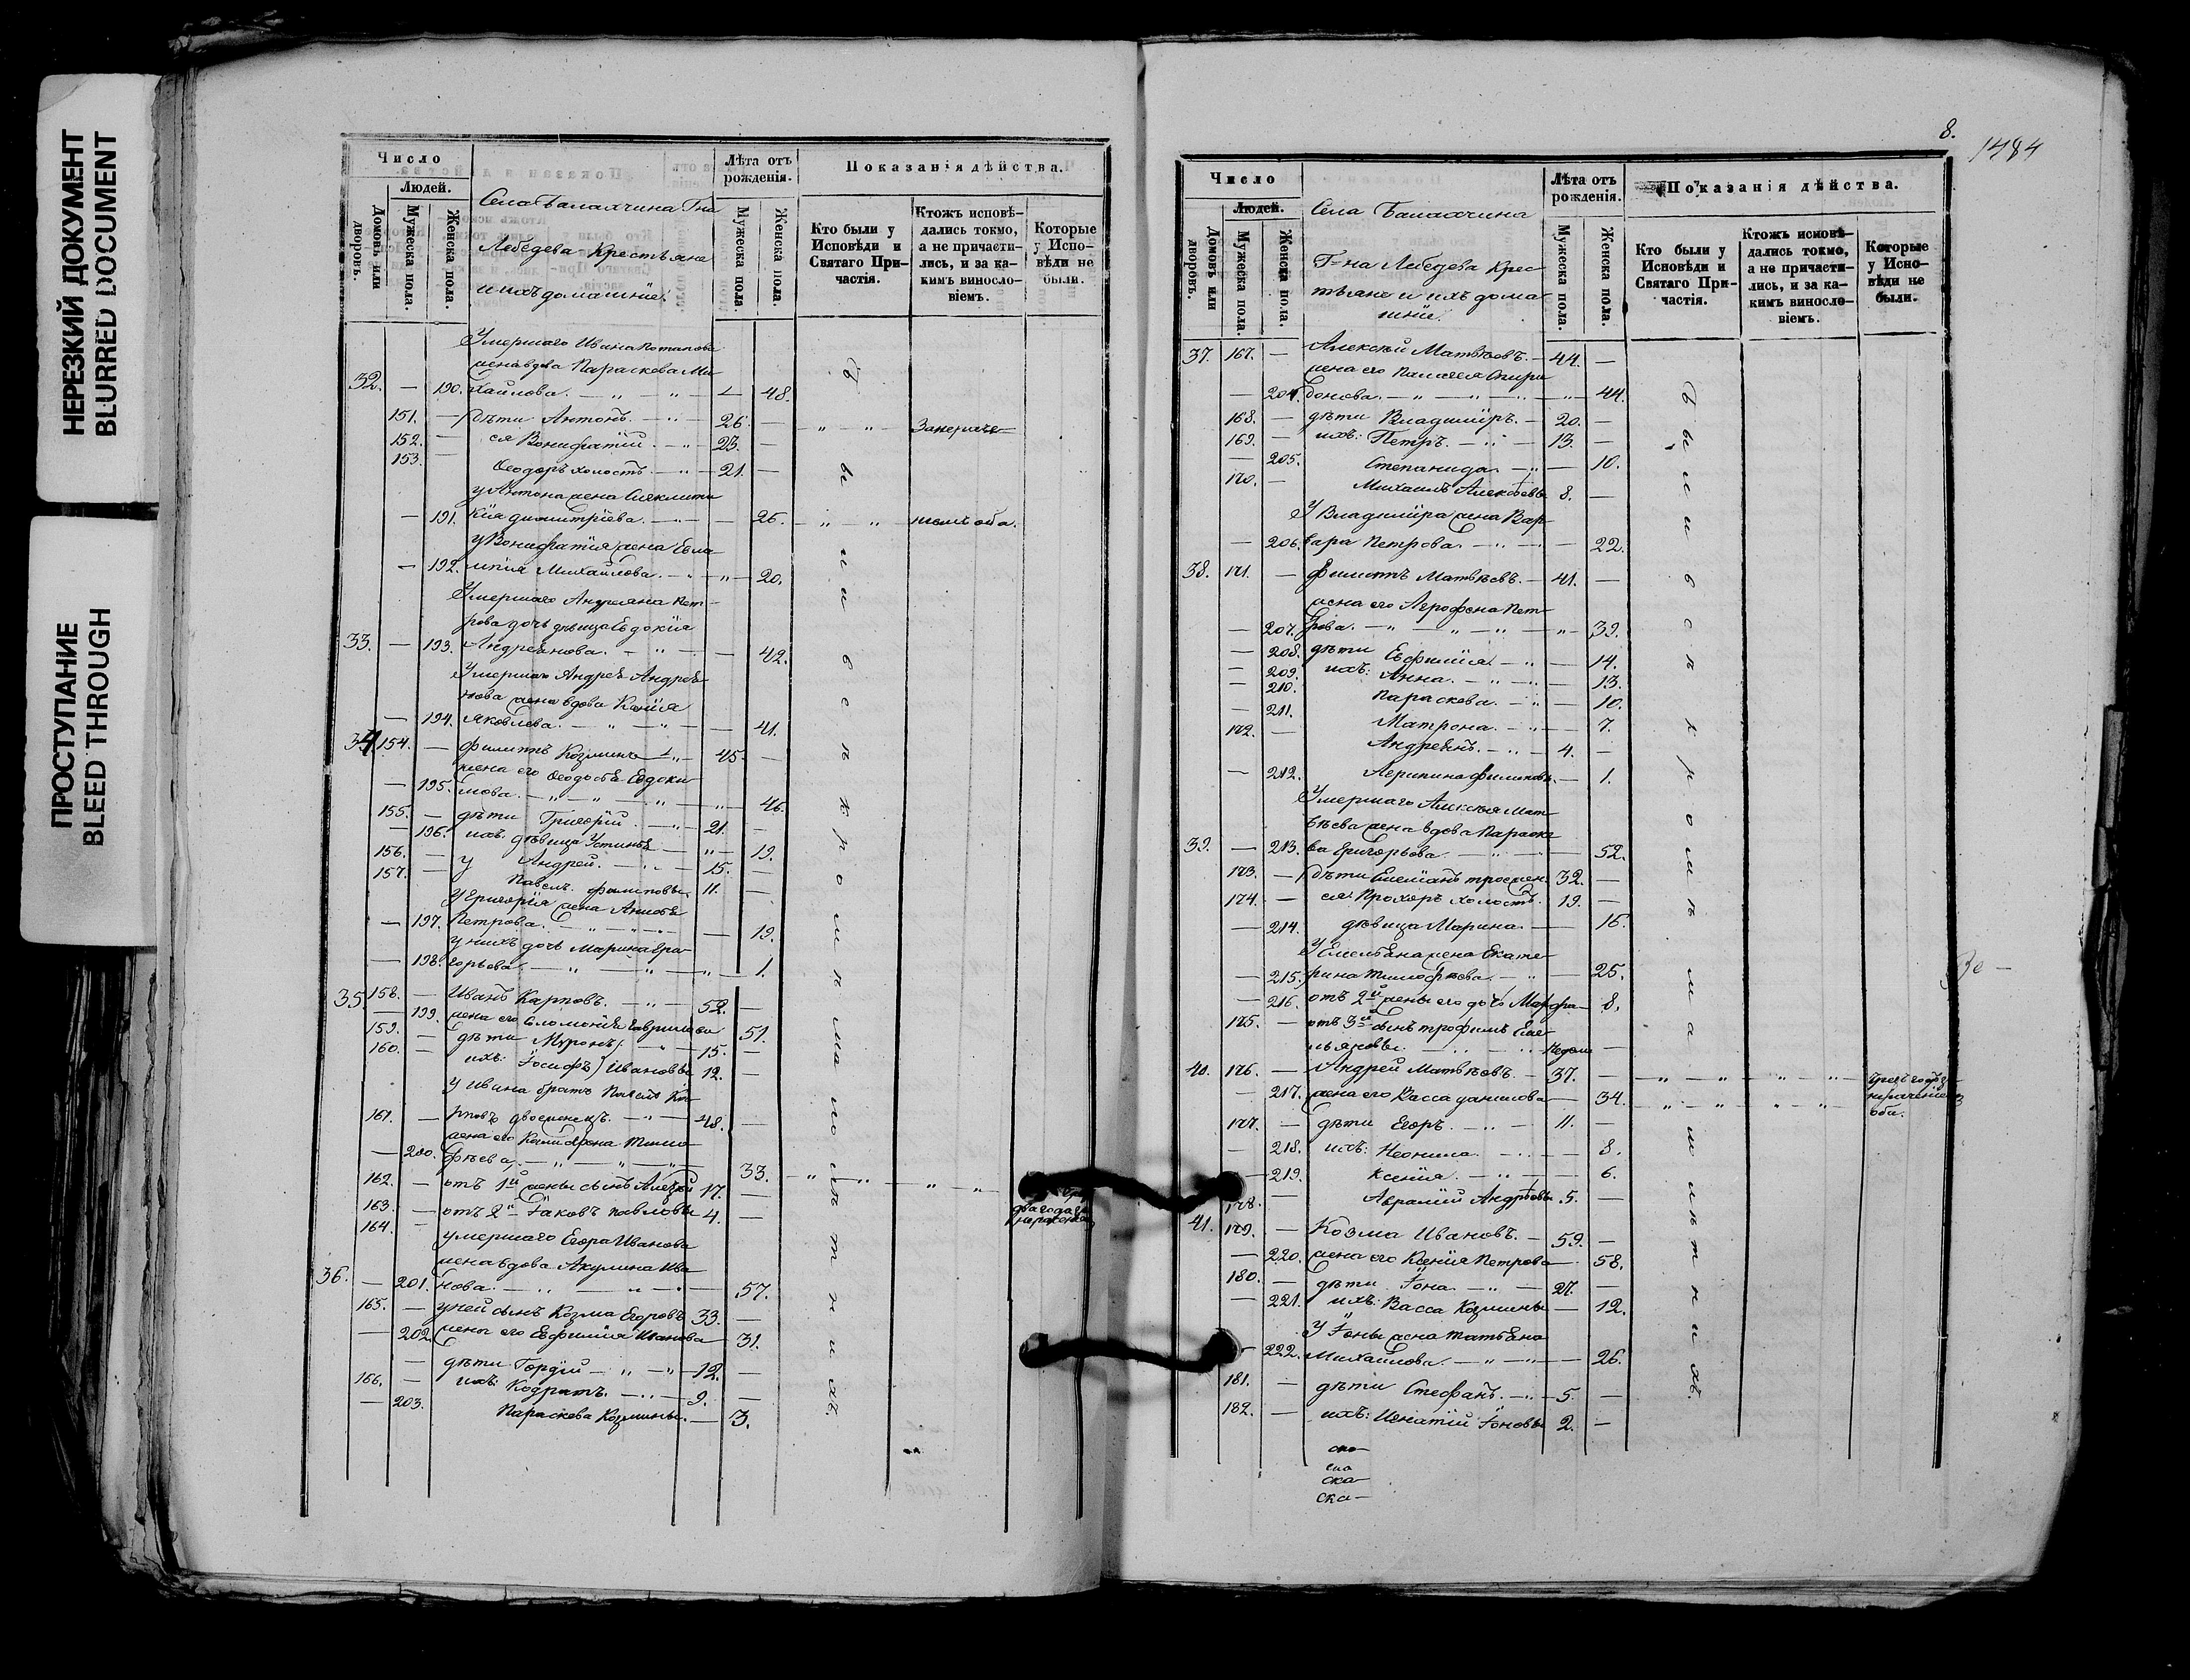 НЕРЕЗКИЙ ДОКУМЕНТ
BLURRED DOCUMENT
ПРОСТУПАНИЕ
BLEED THROUGH
Число
Людей.
Домовъ или дворовъ.
Мужеска пола.
Женска пола.
Села Балахчина Гна
Лебедева Крестьяне
и ихъ домашніе:
Лѣта отъ рожденія.
Мужеска пола.
Женска пола.
Показанія дѣйства.
Кто были у Исповѣди и Святаго При-
частія.
Ктожъ исповѣ-
дались токмо,
а не причасти-
лись, и за ка-
кимъ винносло-
віемъ.
Которые у Испо-
вѣди не были.
Умершаго Ивана Потапова
жена вдова Параскева Ми
32. — 190. хайлова. — 48.
151. — дѣти Антонъ. — 26. —
152. — ея Вонифатій. — 23.
153. — Ѳеодоръ холостъ. — 21. —
у Антона жена
— 191. кія Димитріева. — 26.
у Вонифатія жена Евла
— 192. мпія Михайлова. — 20.
Умершаго Андреяна Пет-
рова дочь дѣвица Евдокія
33. — 193. Андреянова. — 42.
Умершаго Андрея Андрея
нова жена вдова Ксенія
— 194. Яковлева. — 41.
34. 154. — Филиппъ Козминъ — 45. —
жена его Ѳеодосья Евдоки
— 195. мова. — 46.
155. — дѣти Григорій. — 21. —
— 196. ихъ: дѣвица Устинья — 19.
156. — Андрей. — 15. —
157. — Павелъ Филиповы. 11. —
у Григорія жена Анисья
— 197. Петрова. — 19.
у нихъ дочь Марина Гри-
— 198. горьева. — 1.
35. 158. — Иванъ Карповъ. — 52. —
— 199. жена его Соломонія Гаврилова 51.
159. — дѣти Миронъ — 15. —
160. — ихъ: Іосифъ Ивановы 12. —
у Ивана братъ Павелъ Ка
161. — рповъ двоеженецъ. — 48. —
жена его Тимо
— 200. фѣева, — 33.
162. — отъ 1й жены сынъ Алексѣй 17. —
163. — отъ 2й Іаковъ Павловы 4. —
164. — умершаго Егора Иванова
жена вдова Акулина Ива
36. — 201. нова. — 57.
165. — у ней сынъ Козма Егоровъ 33. —
— 202. жена его Евфимія Иванова — 31.
— дѣти Гордій — 12. —
166. — ихъ: Кодратъ. — 9. —
— 203. Параскева Козмины. — 3.
были в с п к р о м ѣ малолѣтнихъ.
8.
1484
Число
Людей.
Домовъ или дворовъ.
Мужеска пола.
Женска пола.
Села Балахчина
Г-на Лебедева Крес
тьяне и ихъ дома
шніе.
Лѣта отъ рожденія.
Мужеска пола.
Женска пола.
Показанія дѣйства.
Кто были у Исповѣди и Святаго При-
частія.
Ктожъ исповѣ-
дались токмо,
а не причасти-
лись, и за ка-
кимъ виносло-
віемъ.
Которые у Испо-
вѣди не были.
37. 167. — Алексѣй Матвѣевъ. — 44. —
жена его Палагея Спири
— 204. донова. — 44.
168. — дѣти Владиміръ. — 20. —
169. — ихъ: Петръ. — 13. —
— 205. Степанида. — 10.
170. — Михаилъ Алексѣевы 8. —
У Владиміра жена Вар
— 206. вара Петрова. — 22.
38. 171. — Филиппъ Матвѣевъ. — 41. —
жена его Агрофена Пет
— 207. рова. — 39.
— 208. дѣти Евфимія — 14.
— 209. ихъ: Анна. — 13.
— 210. Параскева. — 10.
— 211. Матрона. — 7.
172. — Андреянъ. — 4. —
— 212. Агрипина Филиповы. — 1.
Умершаго Алексѣя Мат
вѣева жена вдова Параске
39. — 213. ва Григорьева — 52.
173. — дѣти Емеліанъ троежен. 32. —
174. — ея: Прохоръ холостъ. 19. —
— 214. дѣвица Марина. — 16.
У Емельяна жена Екате
— 215. рина Тимофѣева. — 25.
— 216. отъ 2й жены его дочь Марфа — 8.
175. — отъ 3й сынъ Трофимъ Еме
льяновы. — недели —
40. 176. — Андрей Матвѣевъ. — 37. —
— 217. жена его Васса Данилова — 34.
оба.
177. — дѣти Егоръ. — 11. —
— 218. ихъ: Неонила. — 8.
— 219. Ксенія. — 6.
178. — Авраамій Андреевы 5. —
41. 179. — Козма Ивановъ. — 59. —
— 220. жена его Ксенія Петрова — 58.
180. — дѣти Іона. — 27. —
— 221. ихъ: Васса Козмины — 12.
У Іоны жена Татьяна
222. Михайлова. — 26.
181. — дѣти Стефанъ. — 5. —
182. — ихъ: Игнатій Іоновы 2. —